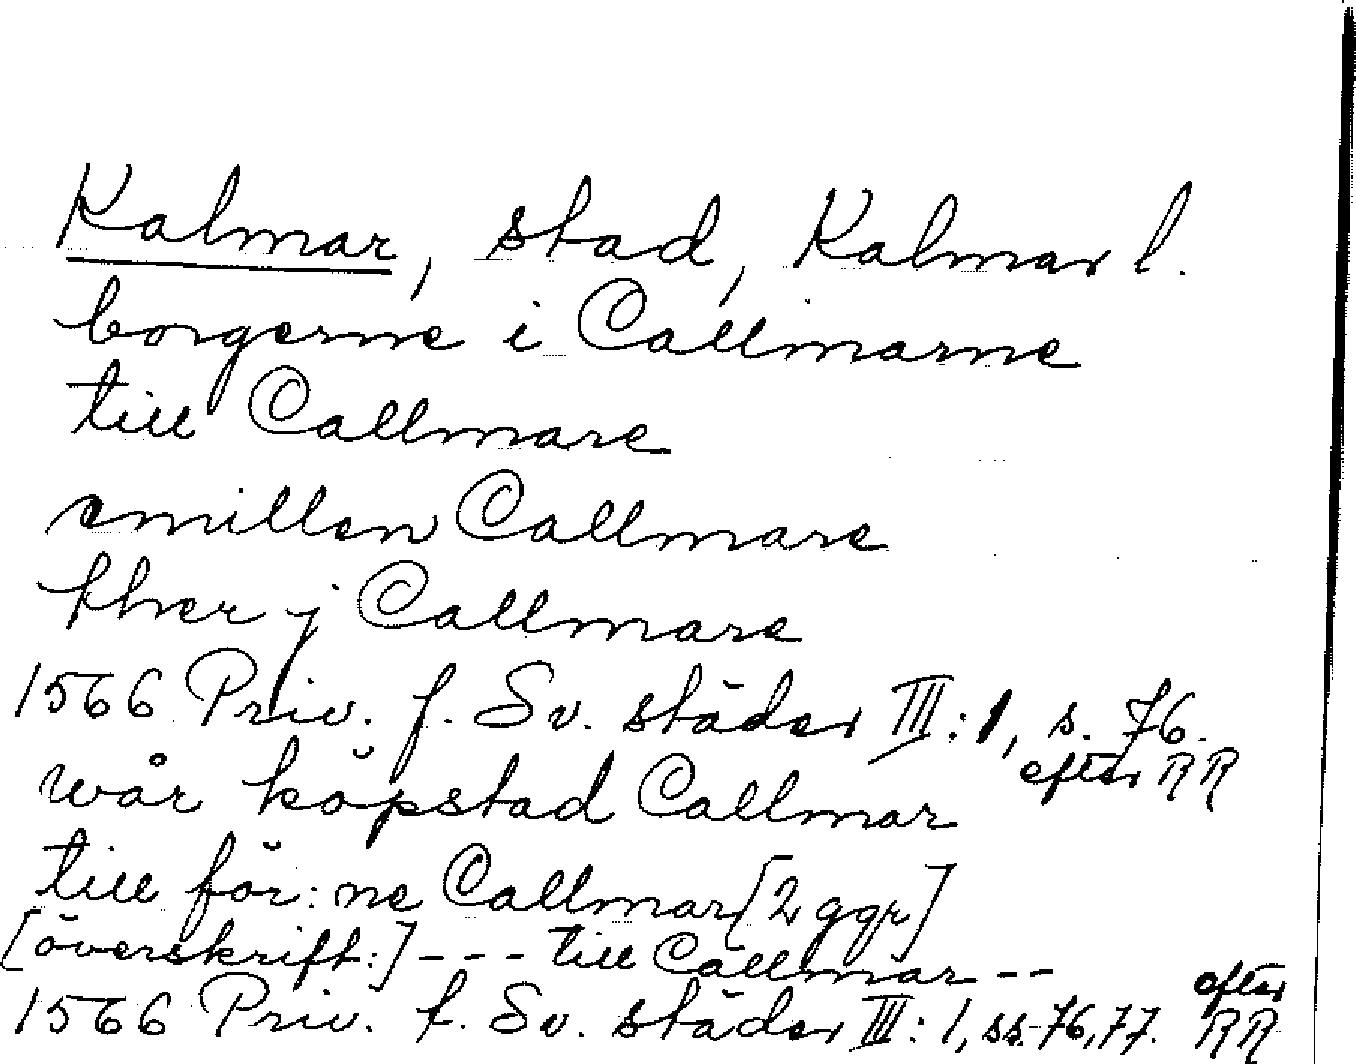 Kalmar, stad, Kalmar l.
borgerne i Callmarne
till Callmare
emillan Callmare
ther j Callmare
1566 Priv. f. Sv. städer III:1, s. 76.
efter RR
wår köpstad Callmar
till för:ne Callmar [2 ggr]
[överskrift:] - - - till Callmar - -
1566 Priv. f. Sv. städer III:1, ss. 76, 77. efter RR